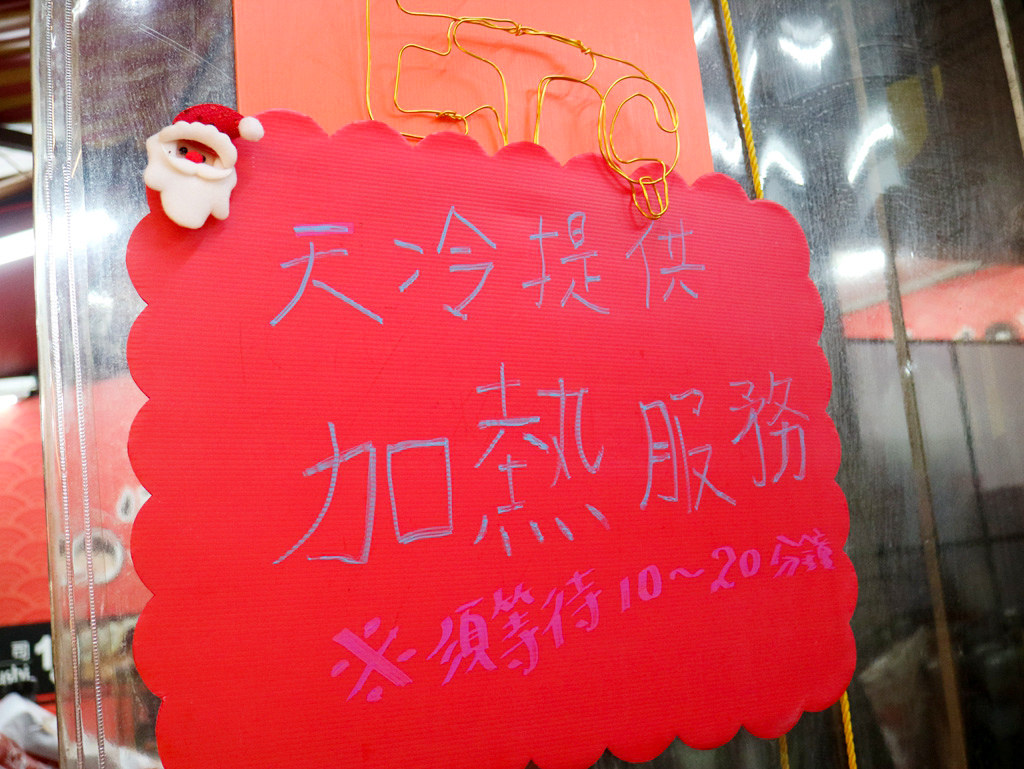 天冷提供
加熱服務
※須等待10~20分鐘
司